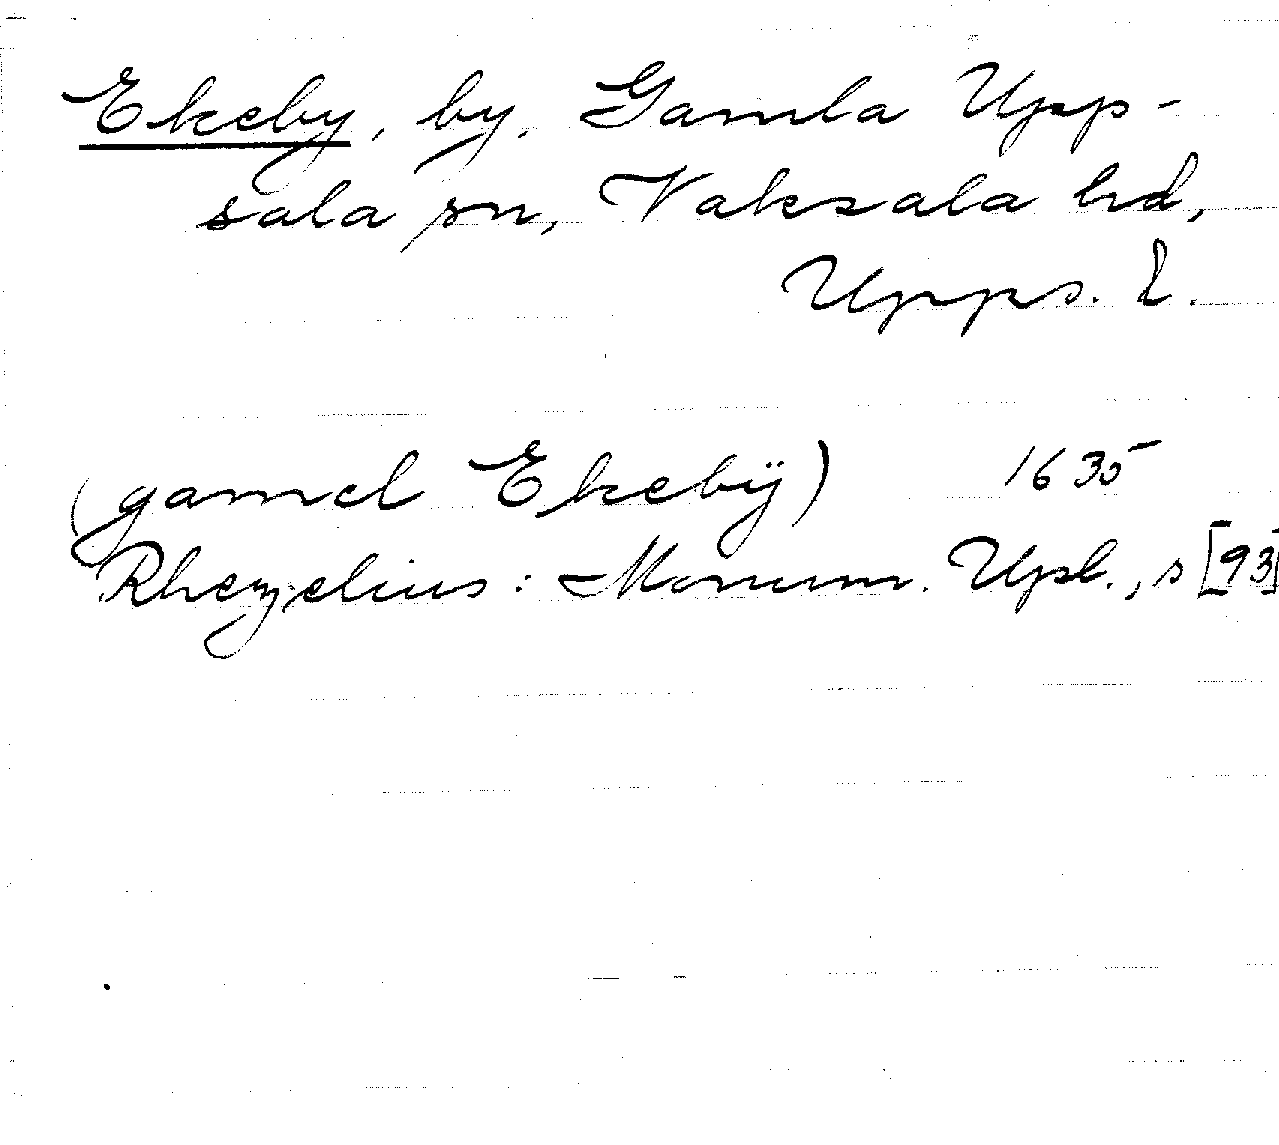 Ekeby, by, Gamla Upp-
sala sn, Vaksala hd,
Upps. l.
(gamel Ekebÿ) 1635
Rhezelius: Monum. Upl., s [93]